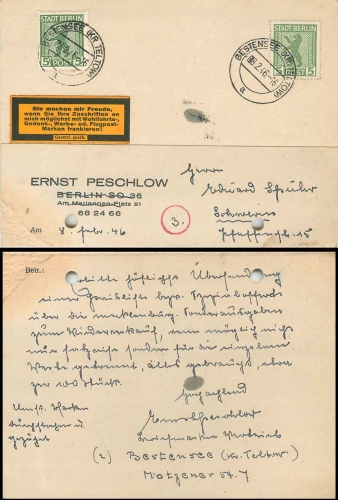 STADT BERLIN
5 POST 5
BESTENSEE (KR TELTOW)
a
STADT BERLIN
5 POST 5
BESTENSEE (KR TELTOW)
8.2.46-16
a
Sie machen mir Freude,
wenn Sie Ihre Zuschriften an
mich möglichst mit Wohlfahrts-,
Gedenk-, Werbe- od. Flugpost-
Marken frankieren!
Gesetzl. gesch.
ERNST PESCHLOW
BERLIN SO 36
Am Mariannen-Platz 21
68 24 66
Am 8. Febr. 46
3.
Herrn
Eduard
Schwerin
15
Betr.:
bitte höflichst Übersendung
einer Preisliste bezw.
über die Mecklenburg. Sonderausgaben
zum Wiederverkauf, nun möglichst nicht
nur sondern für die einzelnen
Werte getrennt, alles gebraucht, etwa
per 100 Stück.
Hochachtend
Ernst Peschlow
Briefmarken Vertrieb
(2) Bestensee (Kr. Teltow)
Motzener St. 7
Umst. Marken